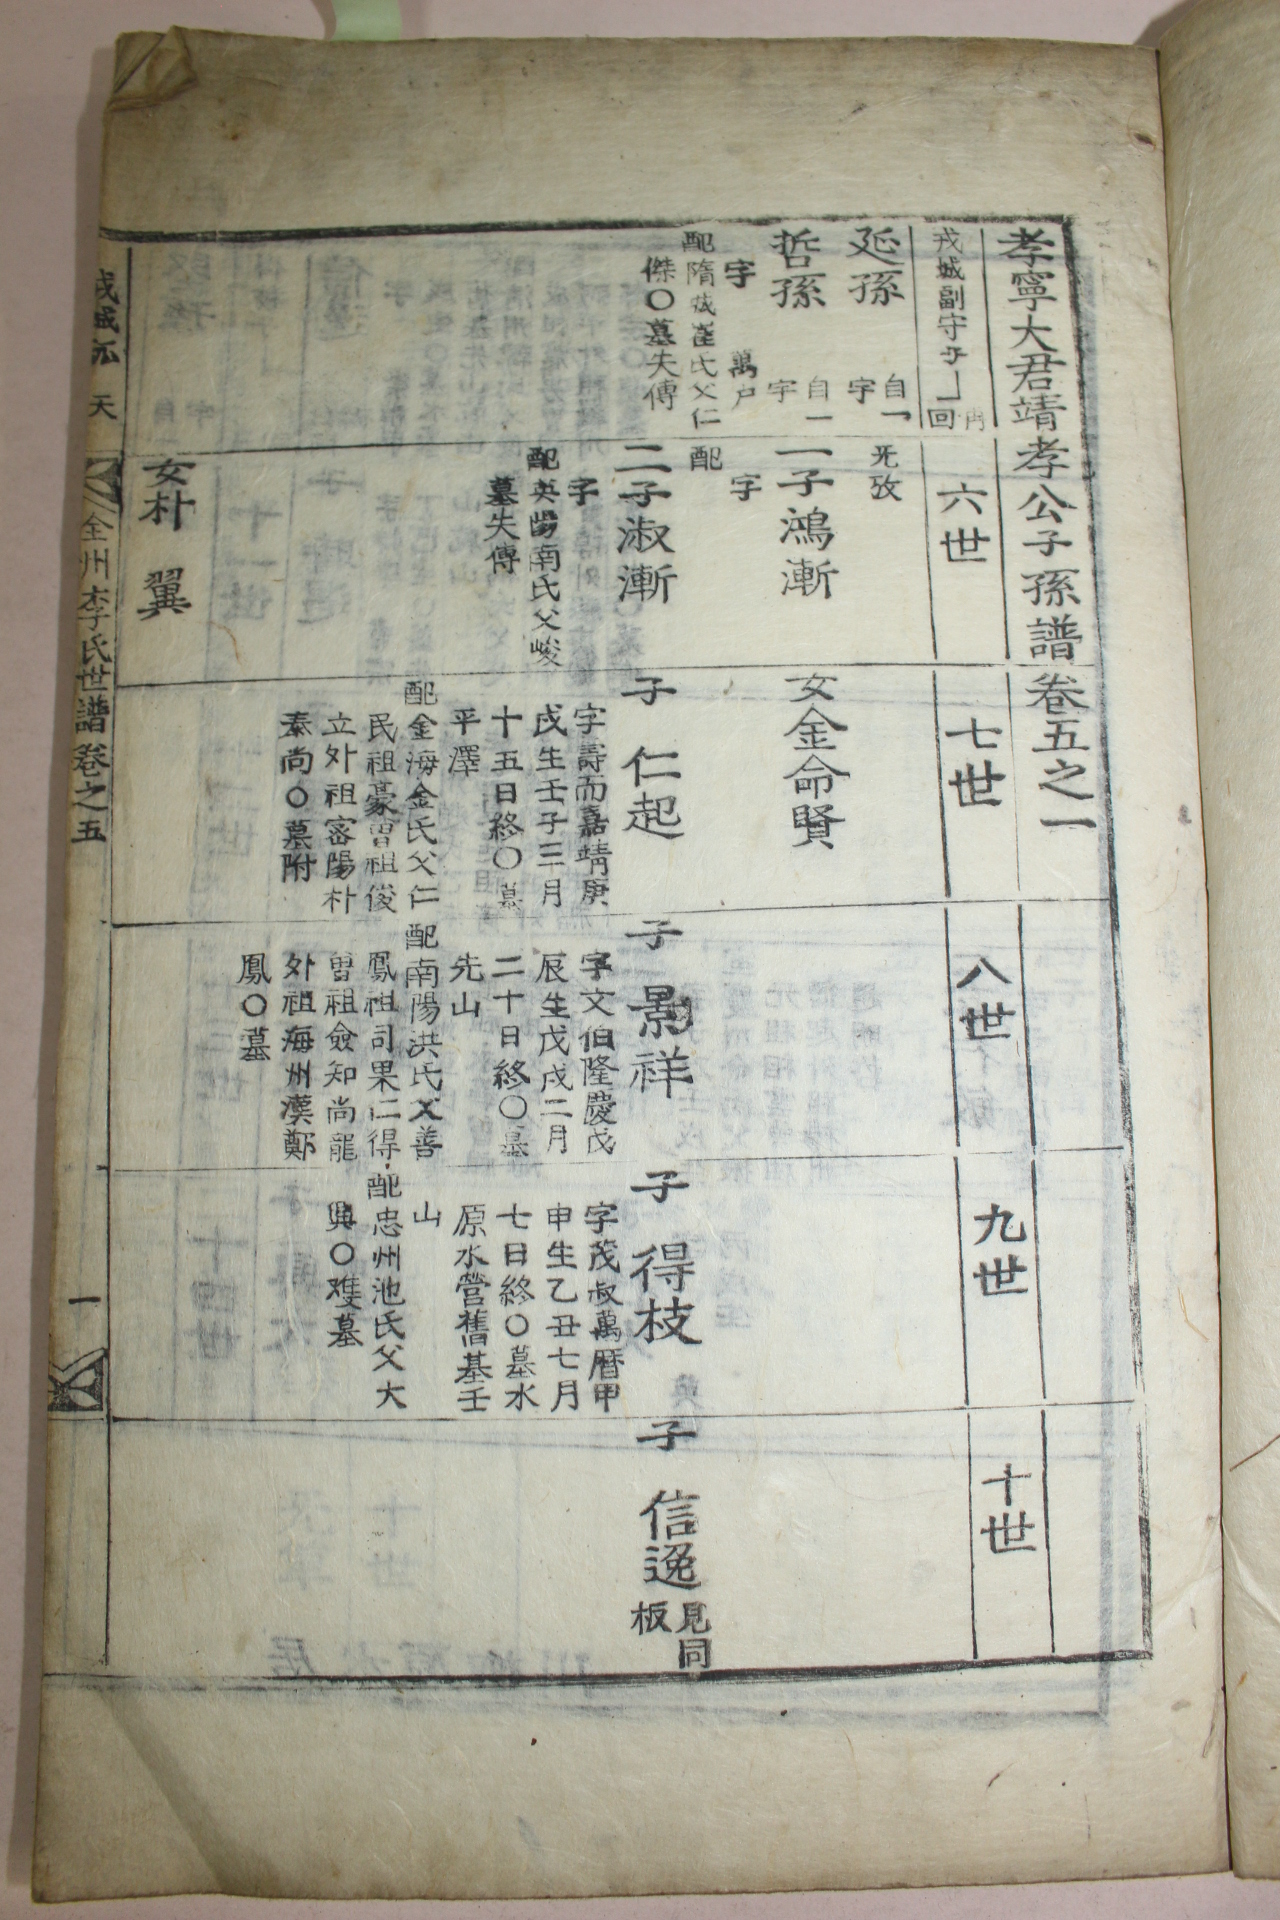 孝寧大君靖孝公子孫譜卷五之一
戎城副守子
六世
七世
八世
九世
十世
延孫
自一
字
无攷
哲孫
自一
字
字 萬戶
配隋城崔氏父仁
傑〇墓失傳
一子鴻漸
字
配
女金命賢
二子淑漸
字
配英陽南氏父峻
墓失傳
子 仁起
字壽而嘉靖庚
戌生壬子三月
十五日終〇墓
平澤
配金海金氏父仁
民祖豪曾祖俊
立外祖密陽朴
泰尚〇墓附
子 景祥
字文伯隆慶戊
辰生戊戌二月
二十日終〇墓
先山
配南陽洪氏父善
鳳祖司果仁得
曾祖僉知尚龍
外祖海州漢鄭
鳳〇墓
子 得枝
字茂叔萬曆甲
申生乙丑七月
七日終〇墓水
原水營舊基壬
山
配忠州池氏父大
興〇雙墓
子 信逸
見同
板
女朴 翼
天
全州李氏世譜卷之五
一